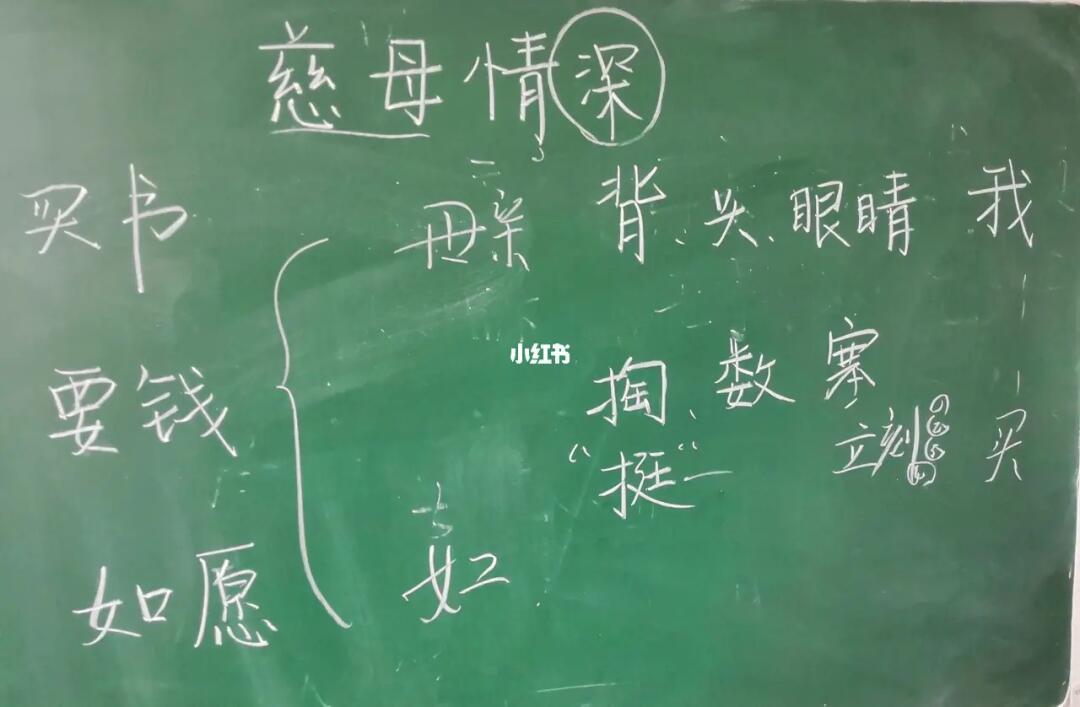 慈母情深
买书 母亲 背、头、眼睛 我
小红书
要钱 掏、数 塞
“挺” 立刻 买
如愿